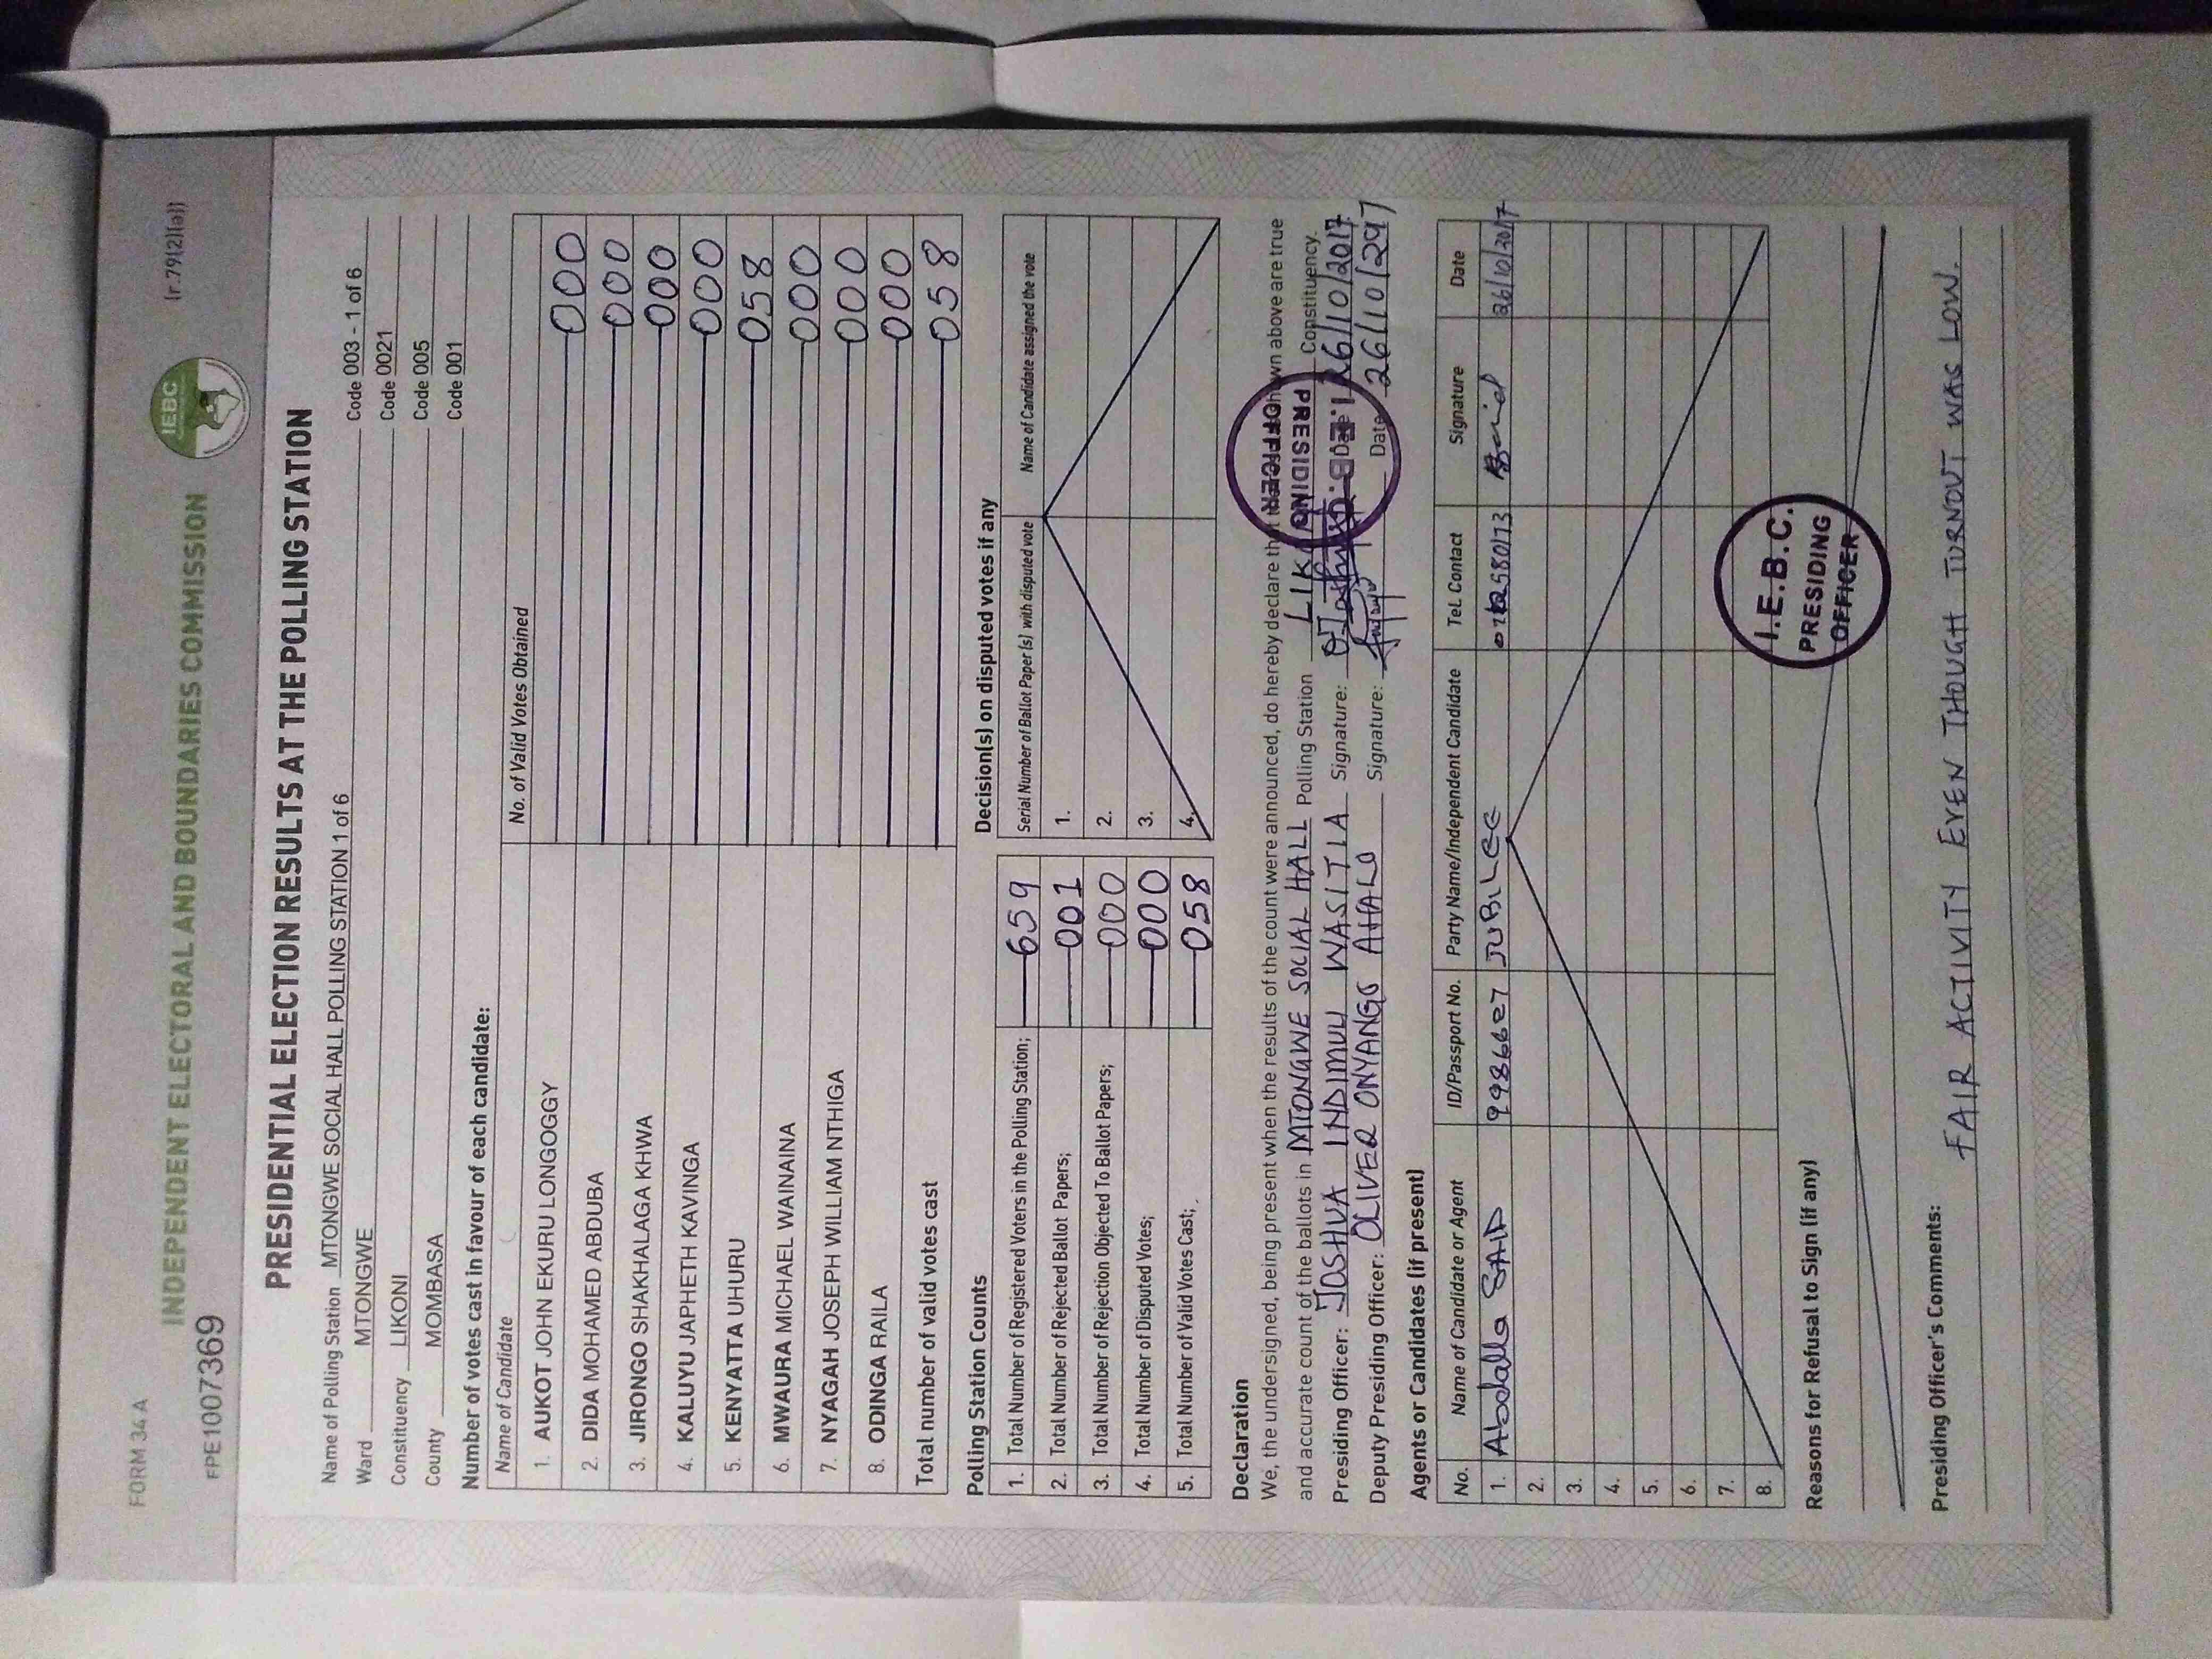 FORM 34 A
(r.79(2)(a))
IEBC
INDEPENDENT ELECTORAL AND BOUNDARIES COMMISSION
FPE1007369
PRESIDENTIAL ELECTION RESULTS AT THE POLLING STATION
Name of Polling Station MTONGWE SOCIAL HALL POLLING STATION 1 of 6 Code 003 - 1 of 6
Ward MTONGWE Code 0021
Constituency LIKONI Code 005
County MOMBASA Code 001
Number of votes cast in favour of each candidate:
Name of Candidate No. of Valid Votes Obtained
1. AUKOT JOHN EKURU LONGOGGY 000
2. DIDA MOHAMED ABDUBA 000
3. JIRONGO SHAKHALAGA KHWA 000
4. KALUYU JAPHETH KAVINGA 000
5. KENYATTA UHURU 058
6. MWAURA MICHAEL WAINAINA 000
7. NYAGAH JOSEPH WILLIAM NTHIGA 000
8. ODINGA RAILA 000
Total number of valid votes cast 058
Polling Station Counts
1. Total Number of Registered Voters in the Polling Station; 659
2. Total Number of Rejected Ballot Papers; 001
3. Total Number of Rejection Objected To Ballot Papers; 000
4. Total Number of Disputed Votes; 000
5. Total Number of Valid Votes Cast; 058
Decision(s) on disputed votes if any
Serial Number of Ballot Paper (s) with disputed vote Name of Candidate assigned the vote
1.
2.
3.
4.
Declaration
We, the undersigned, being present when the results of the count were announced, do hereby declare that shown above are true
and accurate count of the ballots in MTONGWE SOCIAL HALL Polling Station Constituency.
Presiding Officer: JOSHUA INDIMULI WASITIA Signature: Date 26/10/2017
Deputy Presiding Officer: OLIVER ONYANGO AHALO Signature: Date 26/10/2917
I.E.B.C. PRESIDING OFFICER
Agents or Candidates (if present)
No. Name of Candidate or Agent ID/Passport No. Party Name/Independent Candidate Tel. Contact Signature Date
1. Abdalla SAID 9986627 JUBILEE 26/10/2017
2.
3.
4.
5.
6.
7.
8.
I.E.B.C.
PRESIDING
OFFICER
Reasons for Refusal to Sign (if any)
Presiding Officer's Comments:
FAIR ACTIVITY EVEN THOUGH TURNOUT WAS LOW.